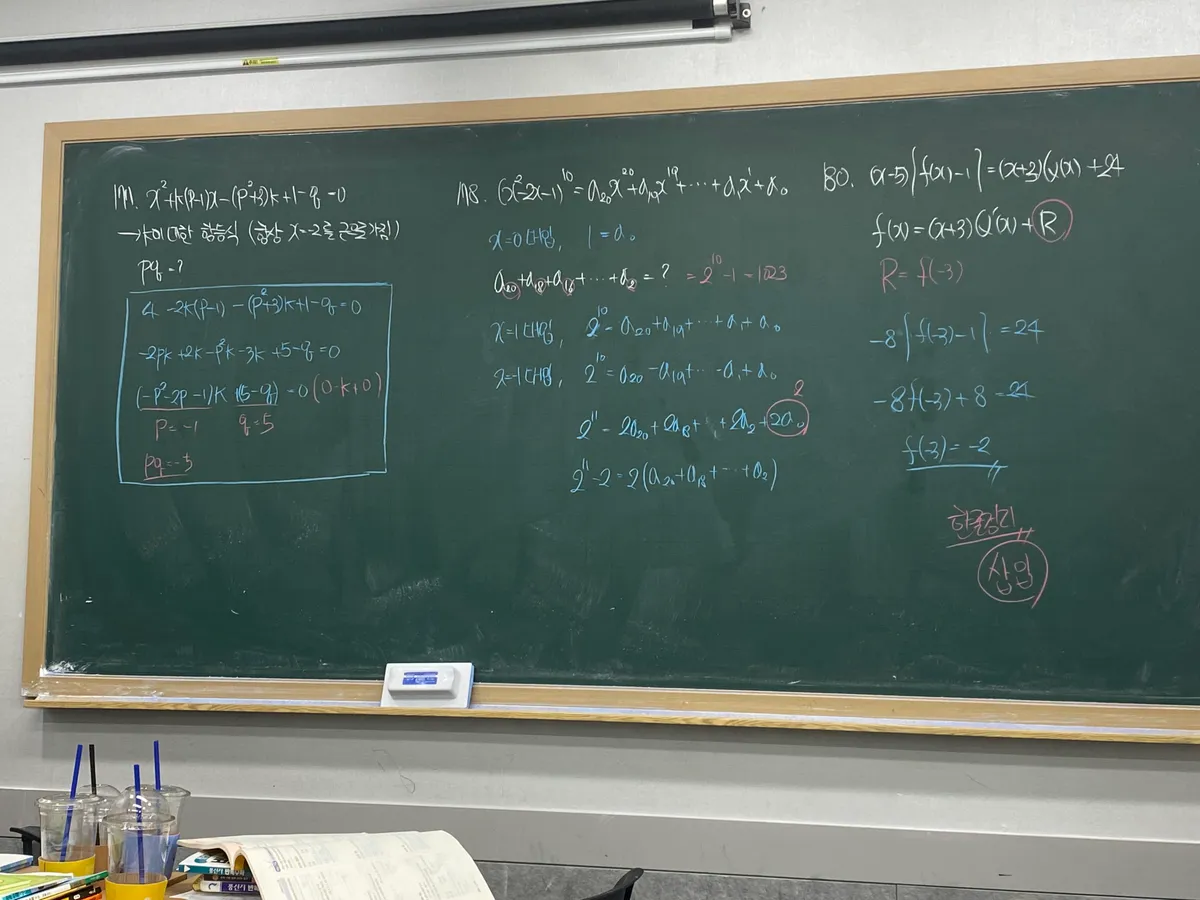 171. x²+k(p-1)x-(p²+3)k+1-q=0
→k에 대한 항등식 (항상 x=-2를 근으로 가짐)
pq=?
4-2k(p-1)-(p²+3)k+1-q=0
-2pk+2k-p²k-3k+5-q=0
(-p²-2p-1)k (5-q)=0 (0·k+0)
p=-1 q=5
pq=-5
178. (x²-2x-1)¹⁰=a₂₀x²⁰+a₁₉x¹⁹+⋯+a₁x¹+a₀
x=0 대입, 1=a₀
a₂₀+a₁₈+a₁₆+⋯+a₂=? =2¹⁰-1=1023
x=1 대입, 2¹⁰=a₂₀+a₁₉+⋯+a₁+a₀
x=-1 대입, 2¹⁰=a₂₀-a₁₉+⋯-a₁+a₀
2
2¹¹=2a₂₀+2a₁₈+⋯+2a₂+2a₀
2¹¹-2=2(a₂₀+a₁₈+⋯+a₂)
180. (x-5){f(x)-1}=(x+3)Q(x)+24
f(x)=(x+3)Q'(x)+R
R=f(-3)
-8{f(-3)-1}=24
-8f(-3)+8=24
f(-3)=-2
한글정리
삽입